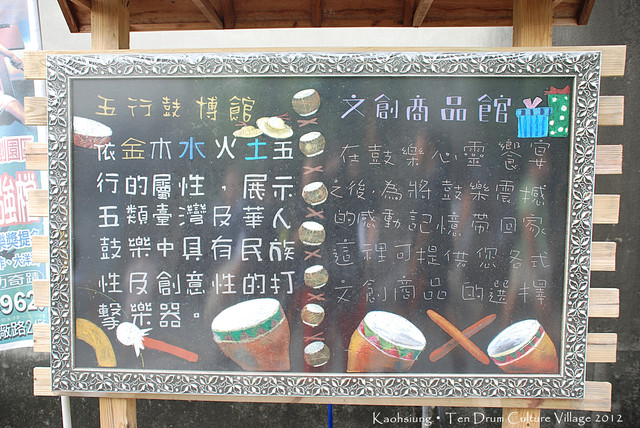 五行鼓博館
依金木水火土五
行的屬性，展示
五類臺灣及華人
鼓樂中具有民族
性及創意性的打
擊樂器。
文創商品館
在鼓樂心靈饗宴
之後，為將鼓樂震撼
的感動記憶帶回家
這裡可提供您各式
文創商品的選擇
962
Kaohsiung • Ten Drum Culture Village 2012